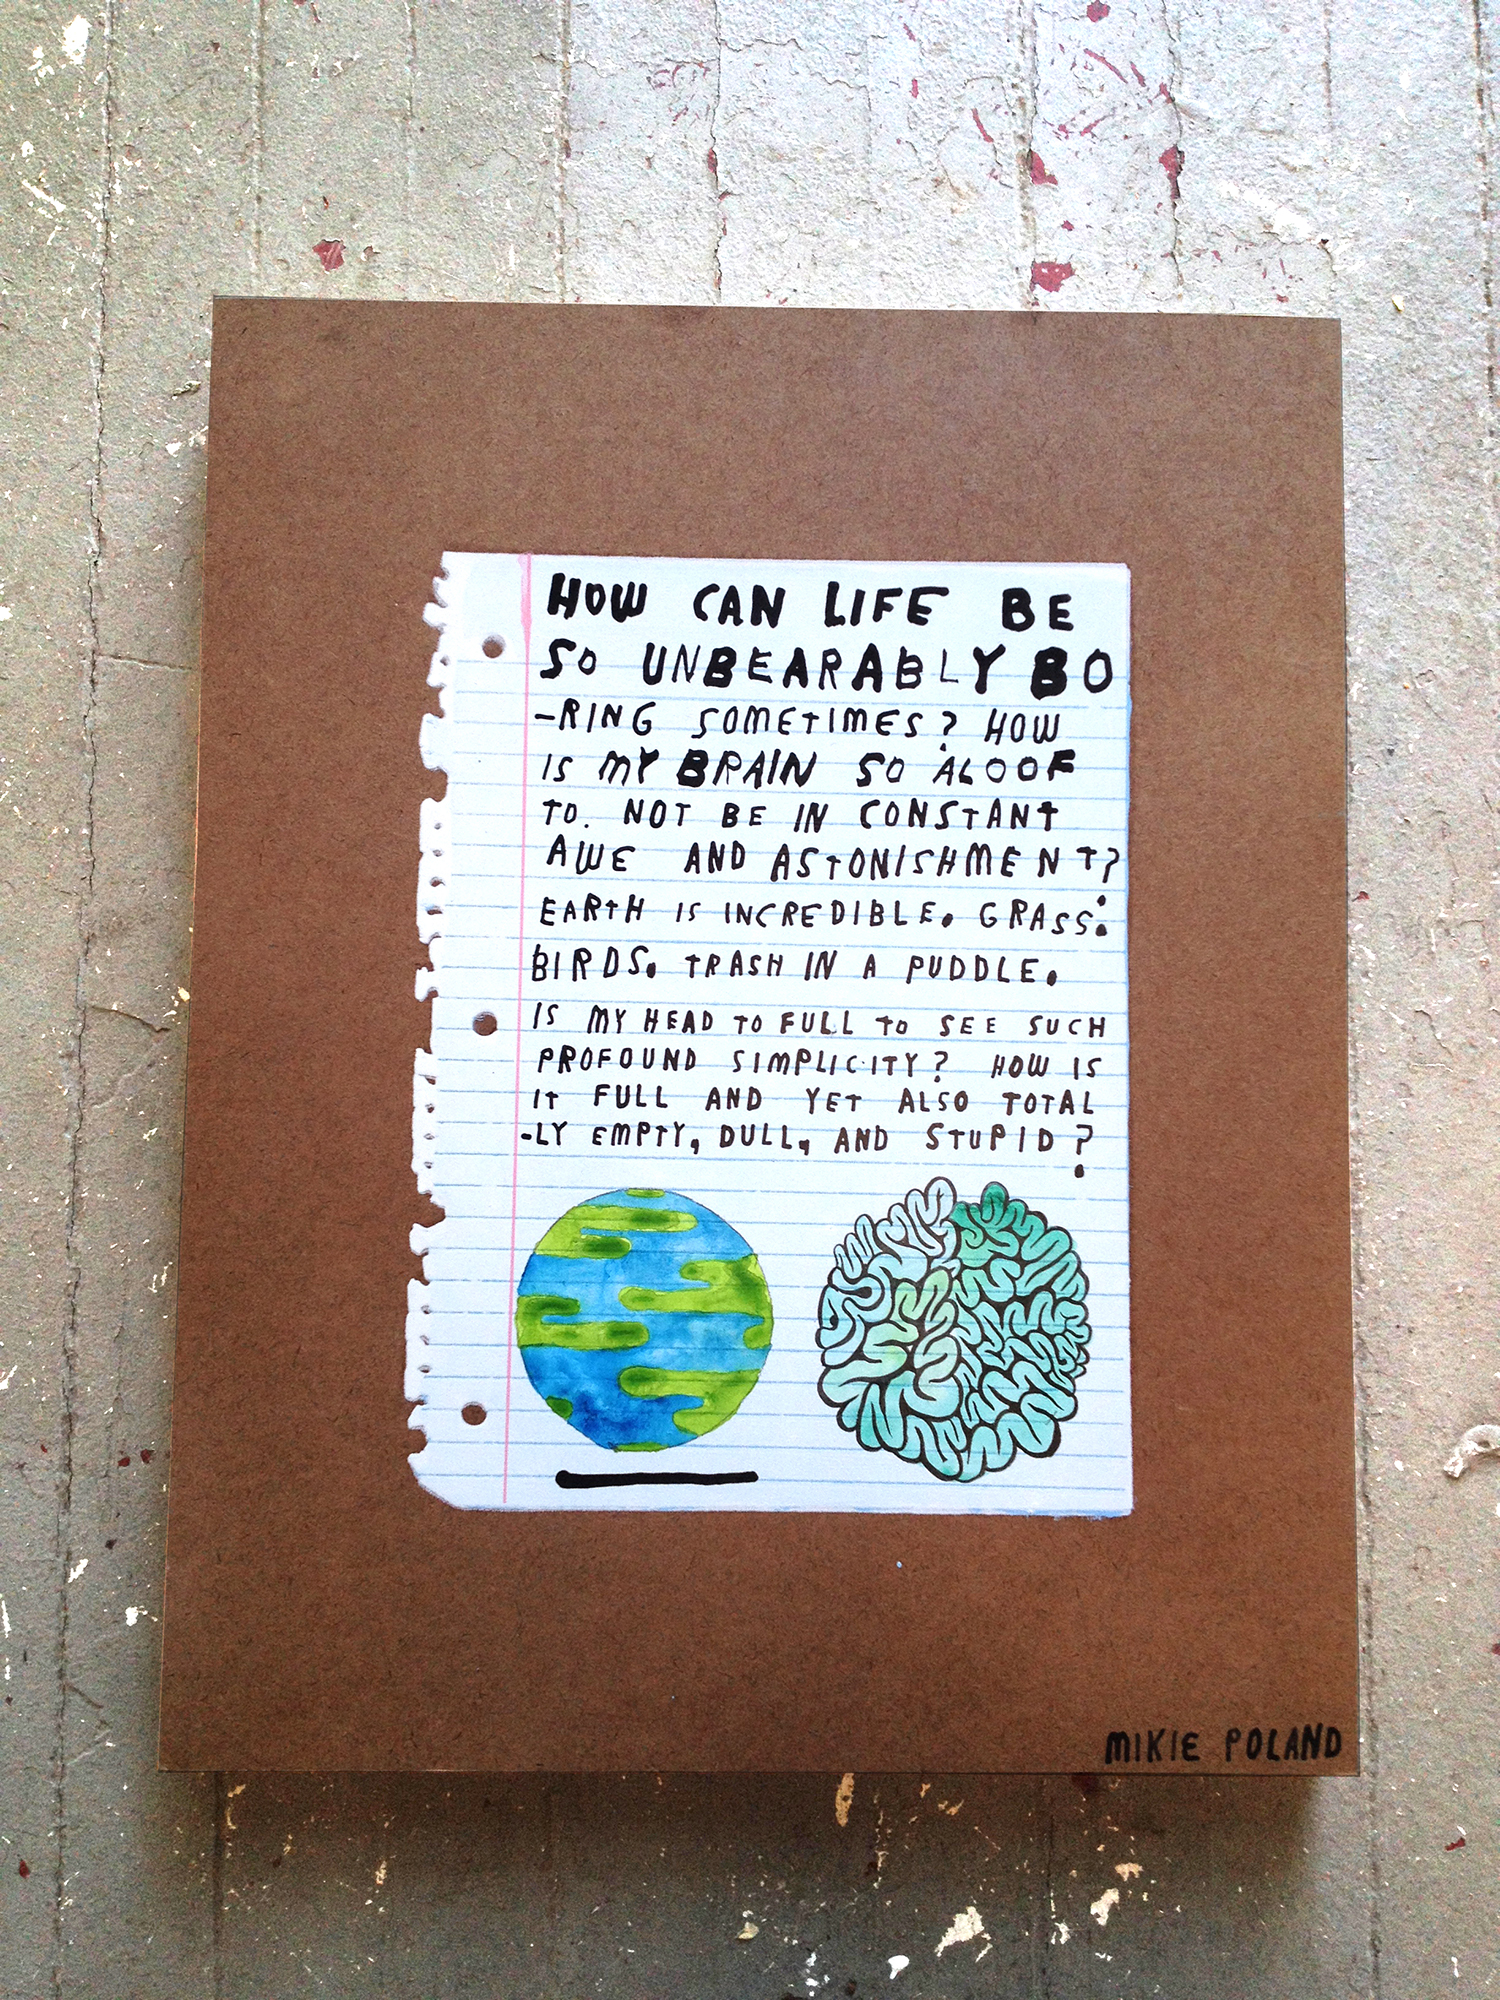 HOW CAN LIFE BE
SO UNBEARABLY BO
-RING SOMETIMES? HOW
IS MY BRAIN SO ALOOF
TO. NOT BE IN CONSTANT
AWE AND ASTONISHMENT?
EARTH IS INCREDIBLE. GRASS.
BIRDS. TRASH IN A PUDDLE.
IS MY HEAD TO FULL TO SEE SUCH
PROFOUND SIMPLICITY? HOW IS
IT FULL AND YET ALSO TOTAL
-LY EMPTY, DULL, AND STUPID?
MIKIE POLAND